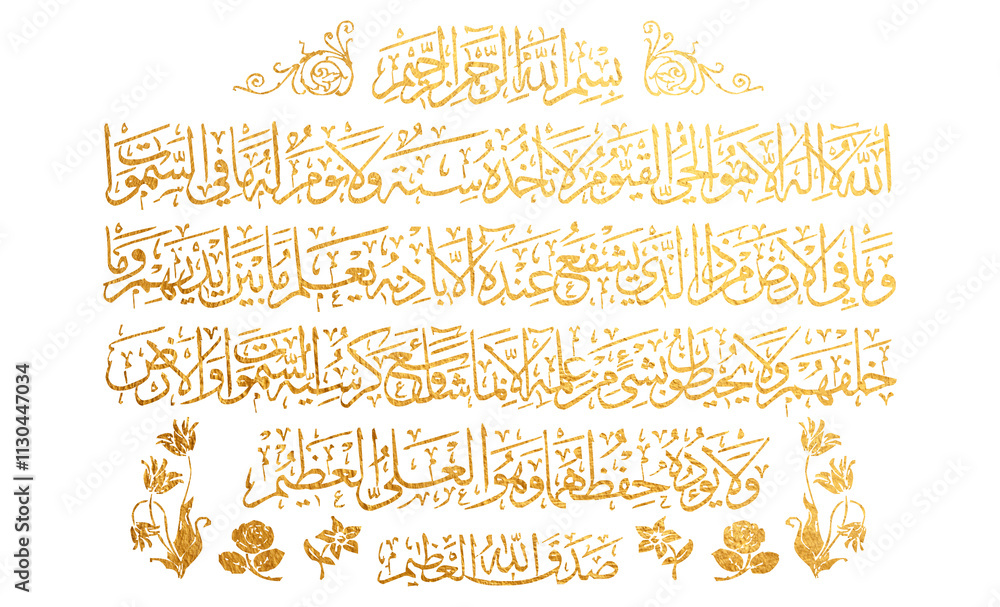 بِسْمِ اللَّهِ الرَّحْمَنِ الرَّحِيمِ
اللَّهُ لَا إِلَهَ إِلَّا هُوَ الْحَيُّ الْقَيُّومُ لَا تَأْخُذُهُ سِنَةٌ وَلَا نَوْمٌ لَهُ مَا فِي السَّمَوَاتِ
وَمَا فِي الْأَرْضِ مَنْ ذَا الَّذِي يَشْفَعُ عِنْدَهُ إِلَّا بِإِذْنِهِ يَعْلَمُ مَا بَيْنَ أَيْدِيهِمْ وَمَا
خَلْفَهُمْ وَلَا يُحِيطُونَ بِشَيْءٍ مِنْ عِلْمِهِ إِلَّا بِمَا شَاءَ وَسِعَ كُرْسِيُّهُ السَّمَوَاتِ وَالْأَرْضَ
وَلَا يَؤُدُهُ حِفْظُهُمَا وَهُوَ الْعَلِيُّ الْعَظِيمُ
صَدَقَ اللَّهُ الْعَظِيمُ
Adobe Stock | #1130447034